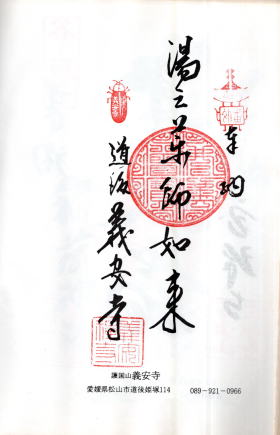 奉拝
湯之薬師如来
道後 義安寺
護国山義安寺
愛媛県松山市道後姫塚114 089-921-0966